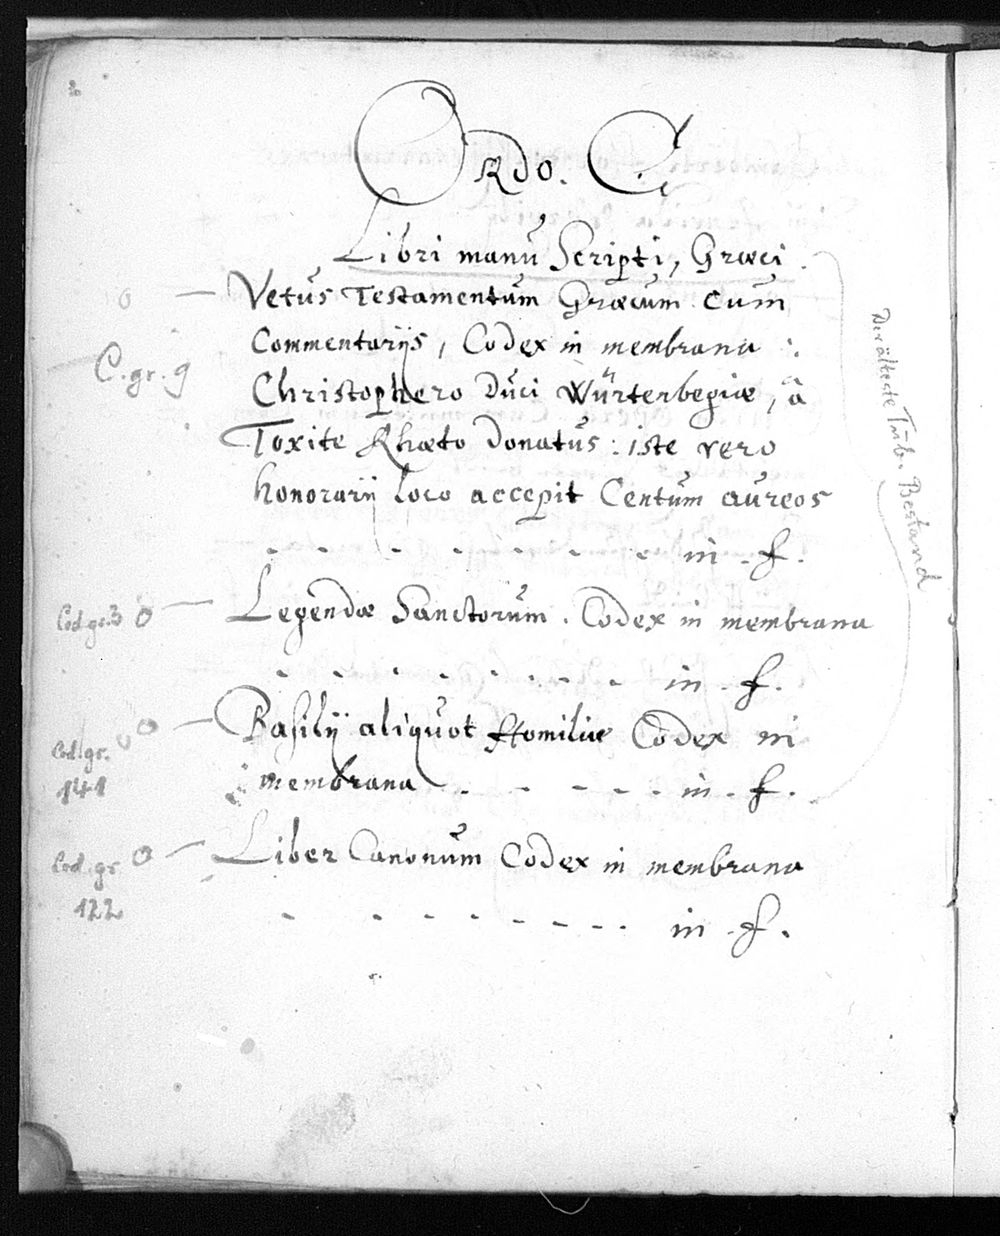 Ordo. C.
Libri manu Scripti, Græci.
o — Vetus Testamentum Græcum cum
Commentarijs, Codex in membrana :
C. gr. 9
Christophero Duci Würterbegiæ, à
Toxite Rhæto donatus: iste vero
honorarij loco accepit Centum aureos
- - - - - - - in . f.
Cod. gr. 3 o — Legendæ Sanctorum. Codex in membrana
- - - - - - - in . f.
Cod. gr. 141 o — Basilij aliquot Homiliæ Codex in
membrana - - - - - in . f.
Cod. gr 122 o — Liber Canonum Codex in membrana
- - - - - - - - in . f.
Der älteste Tüb. Bestand